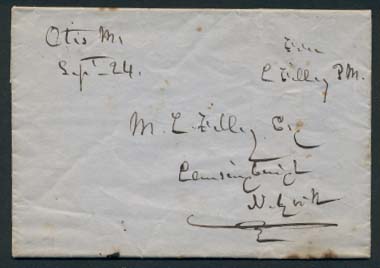 Otis M.
Sept 24.
Free
L Filley P.M.
M. L. Filley Esq
Lansingburgh
N. York